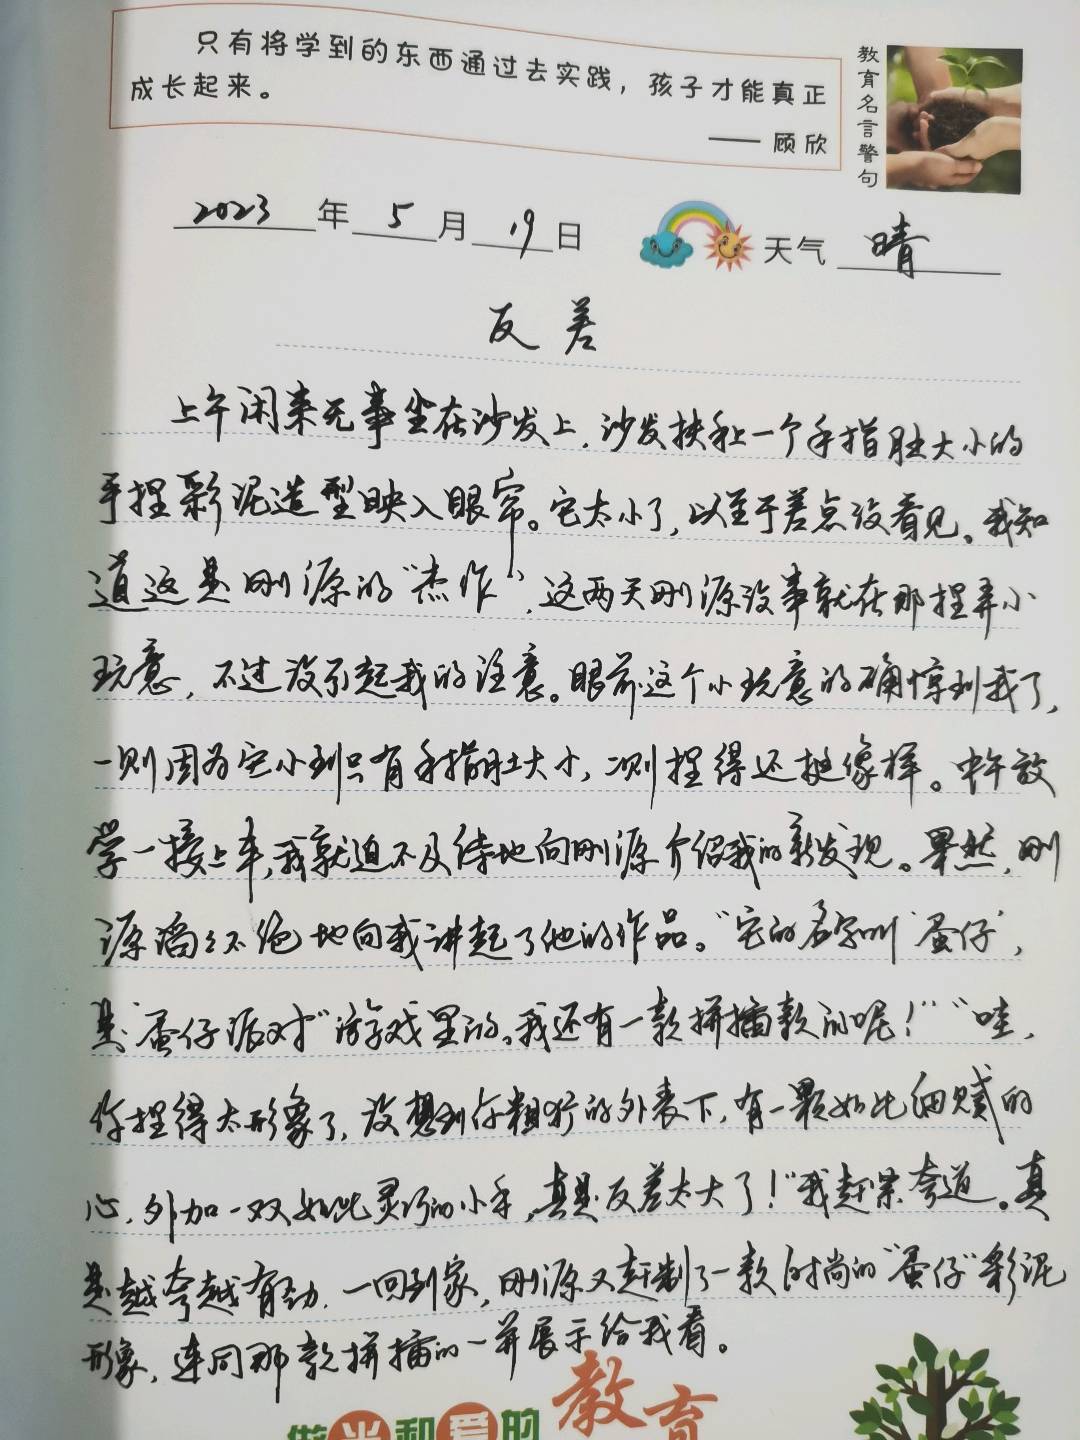 只有将学到的东西通过去实践，孩子才能真正
成长起来。
—— 顾欣
教育名言警句
2023年5月19日 天气 晴
反差
上午闲来无事坐在沙发上，沙发扶手上一个手指肚大小的
手捏彩泥造型映入眼帘。它太小了，以至于差点没看见。我知
道这是刚源的“杰作”，这两天刚源没事就在那捏弄小
玩意，不过没引起我的注意。眼前这个小玩意的确惊到我了，
一则因为它小到只有手指肚大小，二则捏得还挺像样。中午放
学一接上车，我就迫不及待地向刚源介绍我的新发现。果然，刚
源滔滔不绝地向我讲起了他的作品。“它的名字叫‘蛋仔’，
是“蛋仔派对”游戏里的。我还有一款拼插款的呢！”“哇，
你捏得太形象了，没想到你粗犷的外表下，有一颗如此细腻的
心，外加一双如此灵巧的小手，真是反差太大了！”我赶紧夸道。真
是越夸越有劲，一回到家，刚源又赶制了一款时尚的“蛋仔”彩泥
形象，连同那款拼插的一并展示给我看。
做光和爱的教育